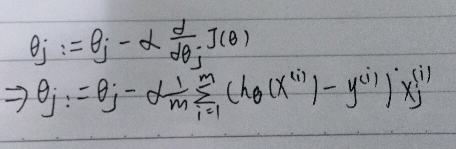 θj := θj - α d/dθj J(θ)
⇒ θj := θj - α 1/m Σ_{i=1}^{m} (hθ(x^(i)) - y^(i)) · xj^(i)